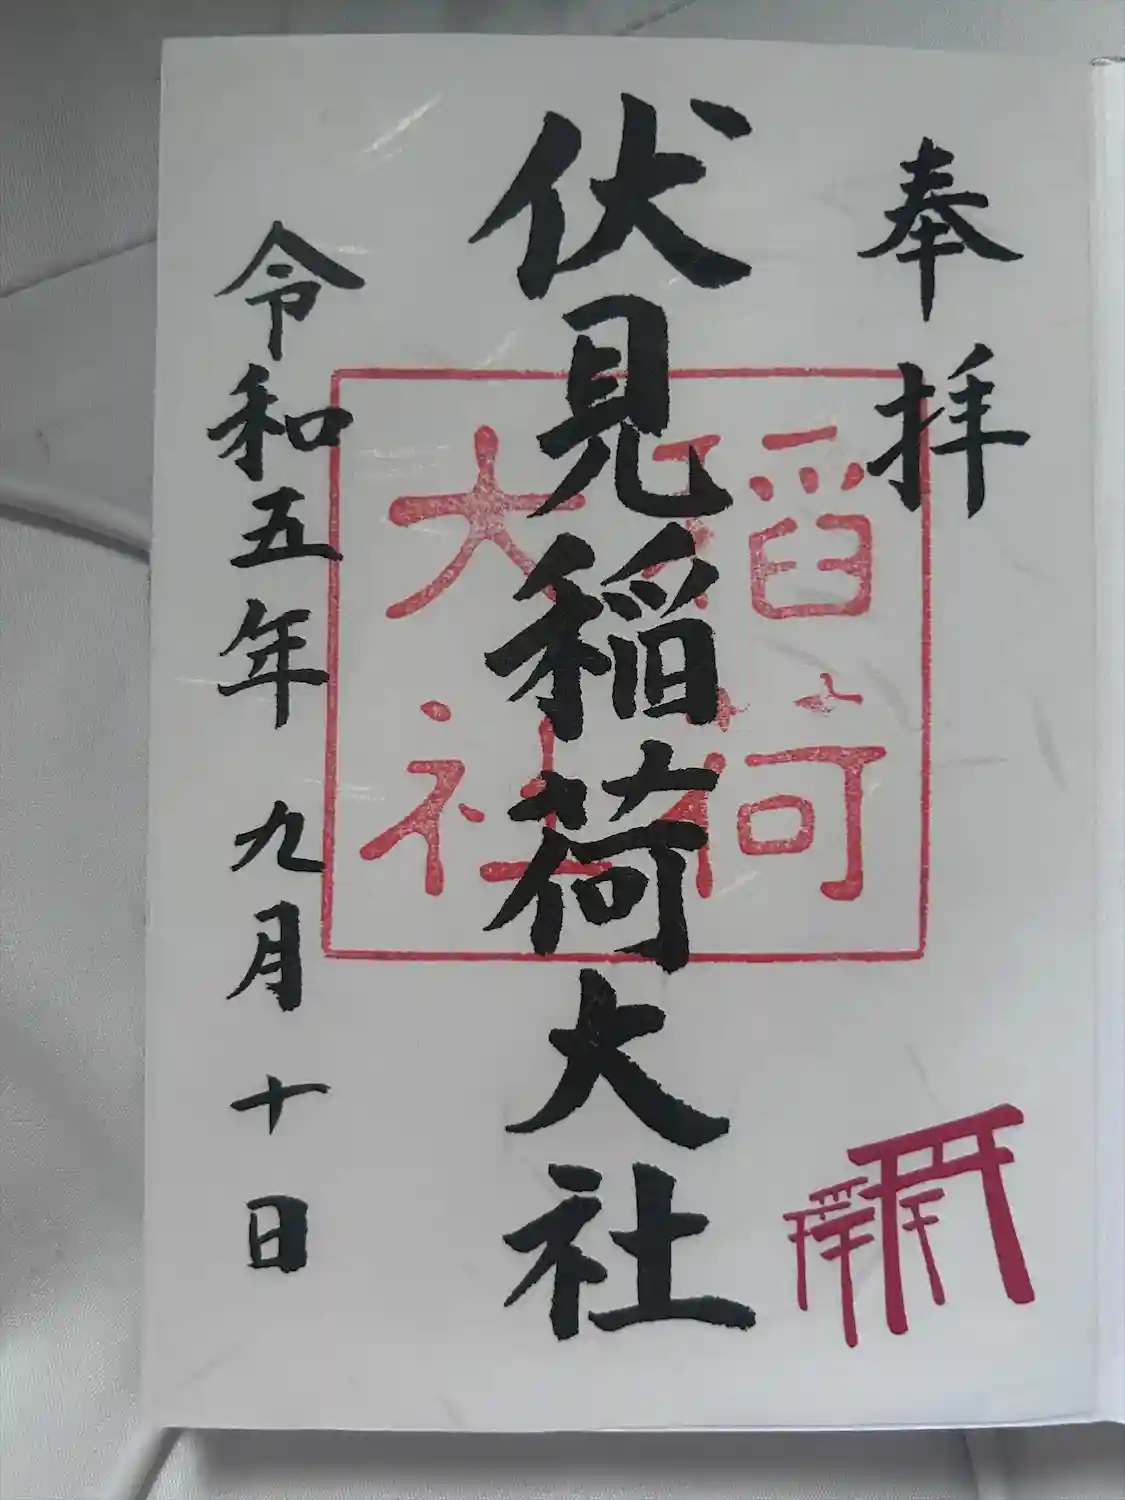 奉拝
伏見稲荷大社
令和五年九月十日
稲荷
大社